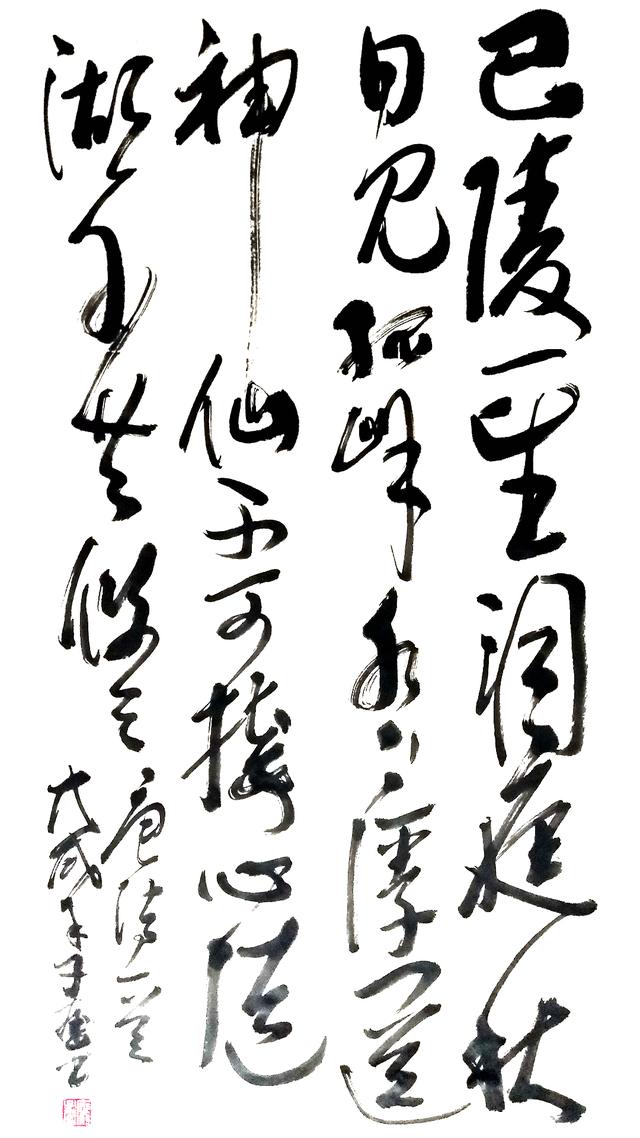 巴陵一望洞庭秋
日见孤峰水上浮闻道
神仙不可接心随
湖水共悠悠
唐诗一首
戊戌年子书